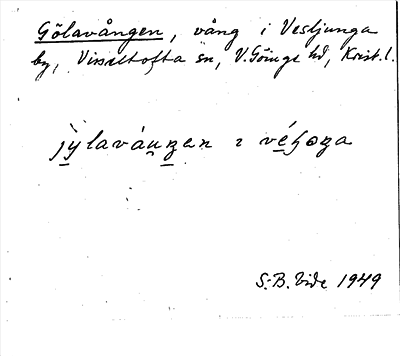 Gölavången, vång i Vesljunga
by, Visseltofta sn, V. Göinge hd, Krist. l.
jy̱lavȧu̱ŋen ı vé̱ɧoŋa
S.-B. Vide 1949